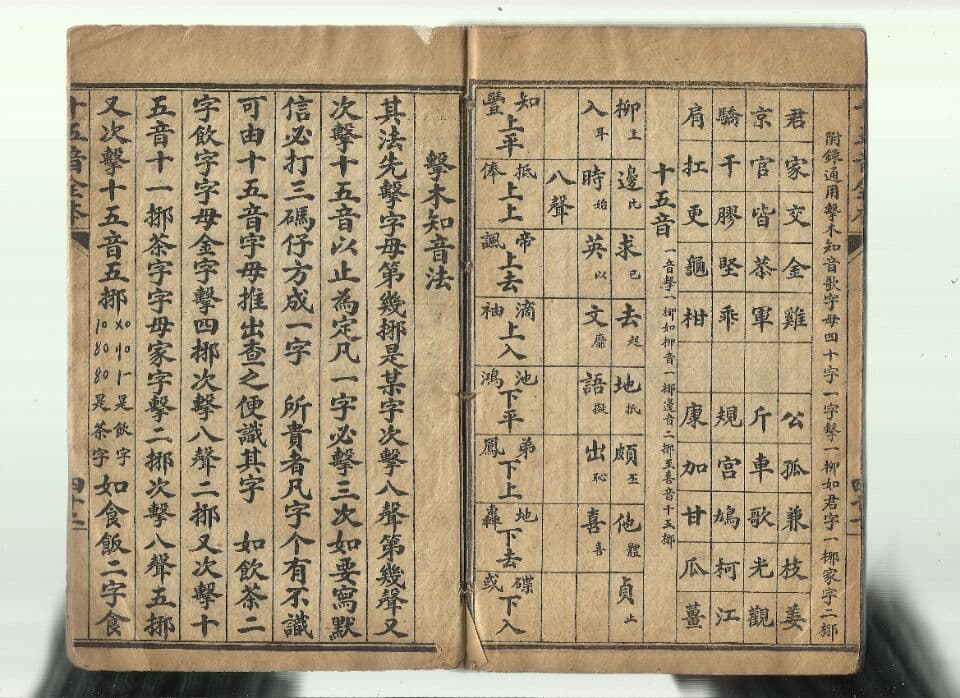 附錄通用擊木知音歌字母四十字一字擊一挷如君字一挷家字二挷
君家交金雞公孤兼枝姜
京官皆恭軍斤車歌光觀
驕干膠堅乖規宮鳩柯江
肩扛更龜柑康加甘瓜薑
十五音 一音擊一挷如柳音一挷邊音二挷至喜音十五挷
柳 邊比 求己 去起 地抵 頗丕 他體 貞止
入耳 時始 英以 文靡 語擬 出恥 喜喜
八聲
知 抵 帝 滴 池 弟 地 碟
上平 上上 上去 上入 下平 下上 下去 下入
豐 俸 諷 袖 鴻 鳳 轟 或
擊木知音法
其法先擊字母第幾挷是某字次擊八聲第幾聲又
次擊十五音以止為定凡一字必擊三次如要寫默
信必打三碼仔方成一字 所貴者凡字个有不識
可由十五音字母推出查之便識其字 如飲茶二
字飲字字母金字擊四挷次擊八聲二挷又次擊十
五音十一挷茶字字母家字擊二挷次擊八聲五挷
又次擊十五音五挷 是飲字 是茶字 如食飯二字食
十五音全本